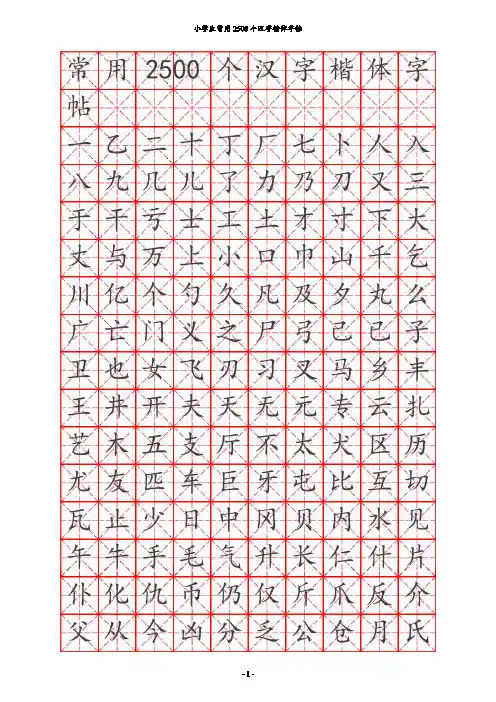 小学生常用2500个汉字楷体字帖
常用2500个汉字楷体字
帖
一乙二十丁厂七卜人入
八九几儿了力乃刀又三
于干亏士工土才寸下大
丈与万上小口巾山千乞
川亿个勺久凡及夕丸么
广亡门义之尸弓己已子
卫也女飞刃习叉马乡丰
王井开夫天无元专云扎
艺木五支厅不太犬区历
尤友匹车巨牙屯比互切
瓦止少日中冈贝内水见
午牛手毛气升长仁什片
仆化仇币仍仅斤爪反介
父从今凶分乏公仓月氏
-1-